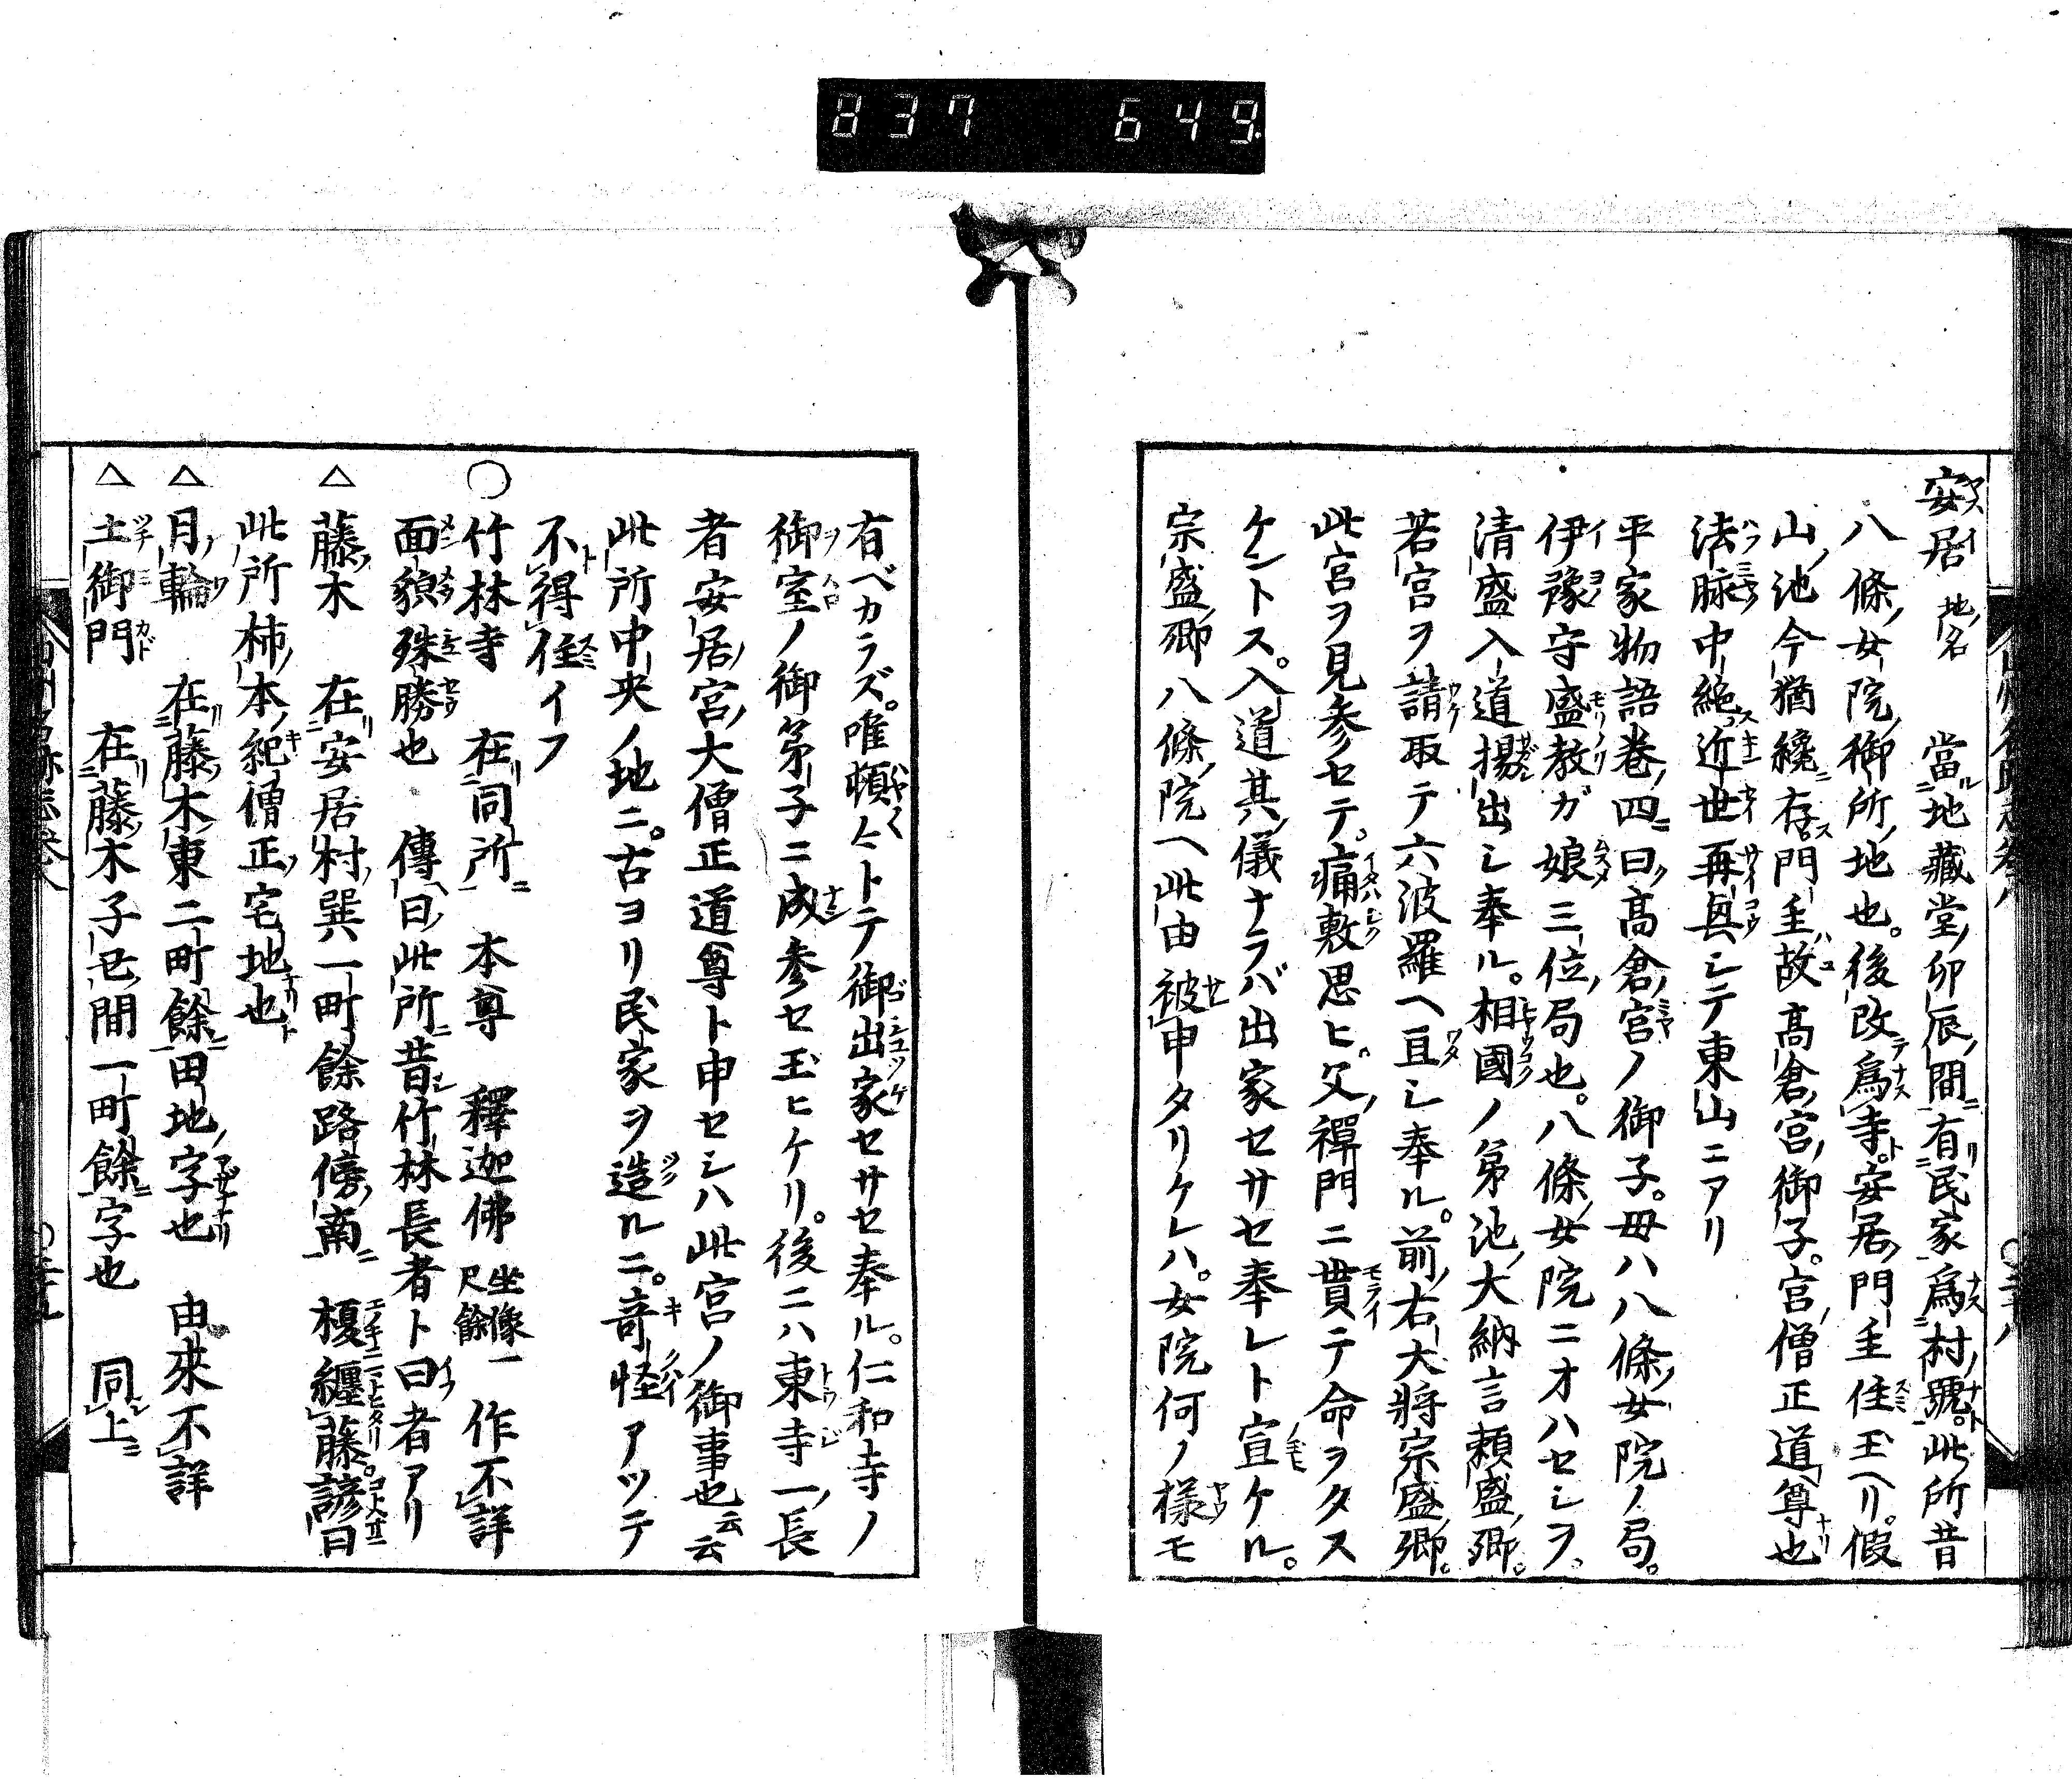 837 649
安居 地名 當地藏堂卯辰間有民家爲村號。此所昔
八條女院御所地也。後改爲寺。安居門主住玉ヘリ。假
山池今猶纔存。門主故高倉宮御子。宮僧正道尊也
法脉中絶近世再興シテ東山ニアリ
平家物語卷四曰高倉宮ノ御子。母ハ八條女院ノ局。
伊豫守盛教ガ娘三位局也。八條女院ニオハセシヲ。
清盛入道揚出シ奉ル。相國ノ弟池大納言頼盛卿。
若宮ヲ請取テ六波羅ヘ亘シ奉ル。前右大將宗盛卿。
此宮ヲ見參セテ。痛敷思ヒ。父禪門ニ貰テ命ヲタス
ケントス。入道其儀ナラバ出家セサセ奉レト宣ケル。
宗盛卿八條院ヘ此由被申タリケレハ。女院何ノ様モ
有ベカラズ。唯頓トトテ御出家セサセ奉ル。仁和寺ノ
御室ノ御弟子ニ成參セ玉ヒケリ。後ニハ東寺一長
者安居宮大僧正道尊ト申セシハ此宮ノ御事也云云
此所中央ノ地ニ。古ヨリ民家ヲ造ルニ。竒怪アツテ
不得住イフ
○竹林寺 在同所 本尊 釋迦佛 坐像一尺餘 作不詳
面貌殊勝也 傳曰此所昔竹林長者ト曰者アリ
△藤木 在安居村巽一町餘路傍南 榎纏藤。諺曰
此所柿本紀僧正宅地也
△月輪 在藤木東二町餘田地字也 由來不詳
△土御門 在藤木子丑間一町餘字也 同上